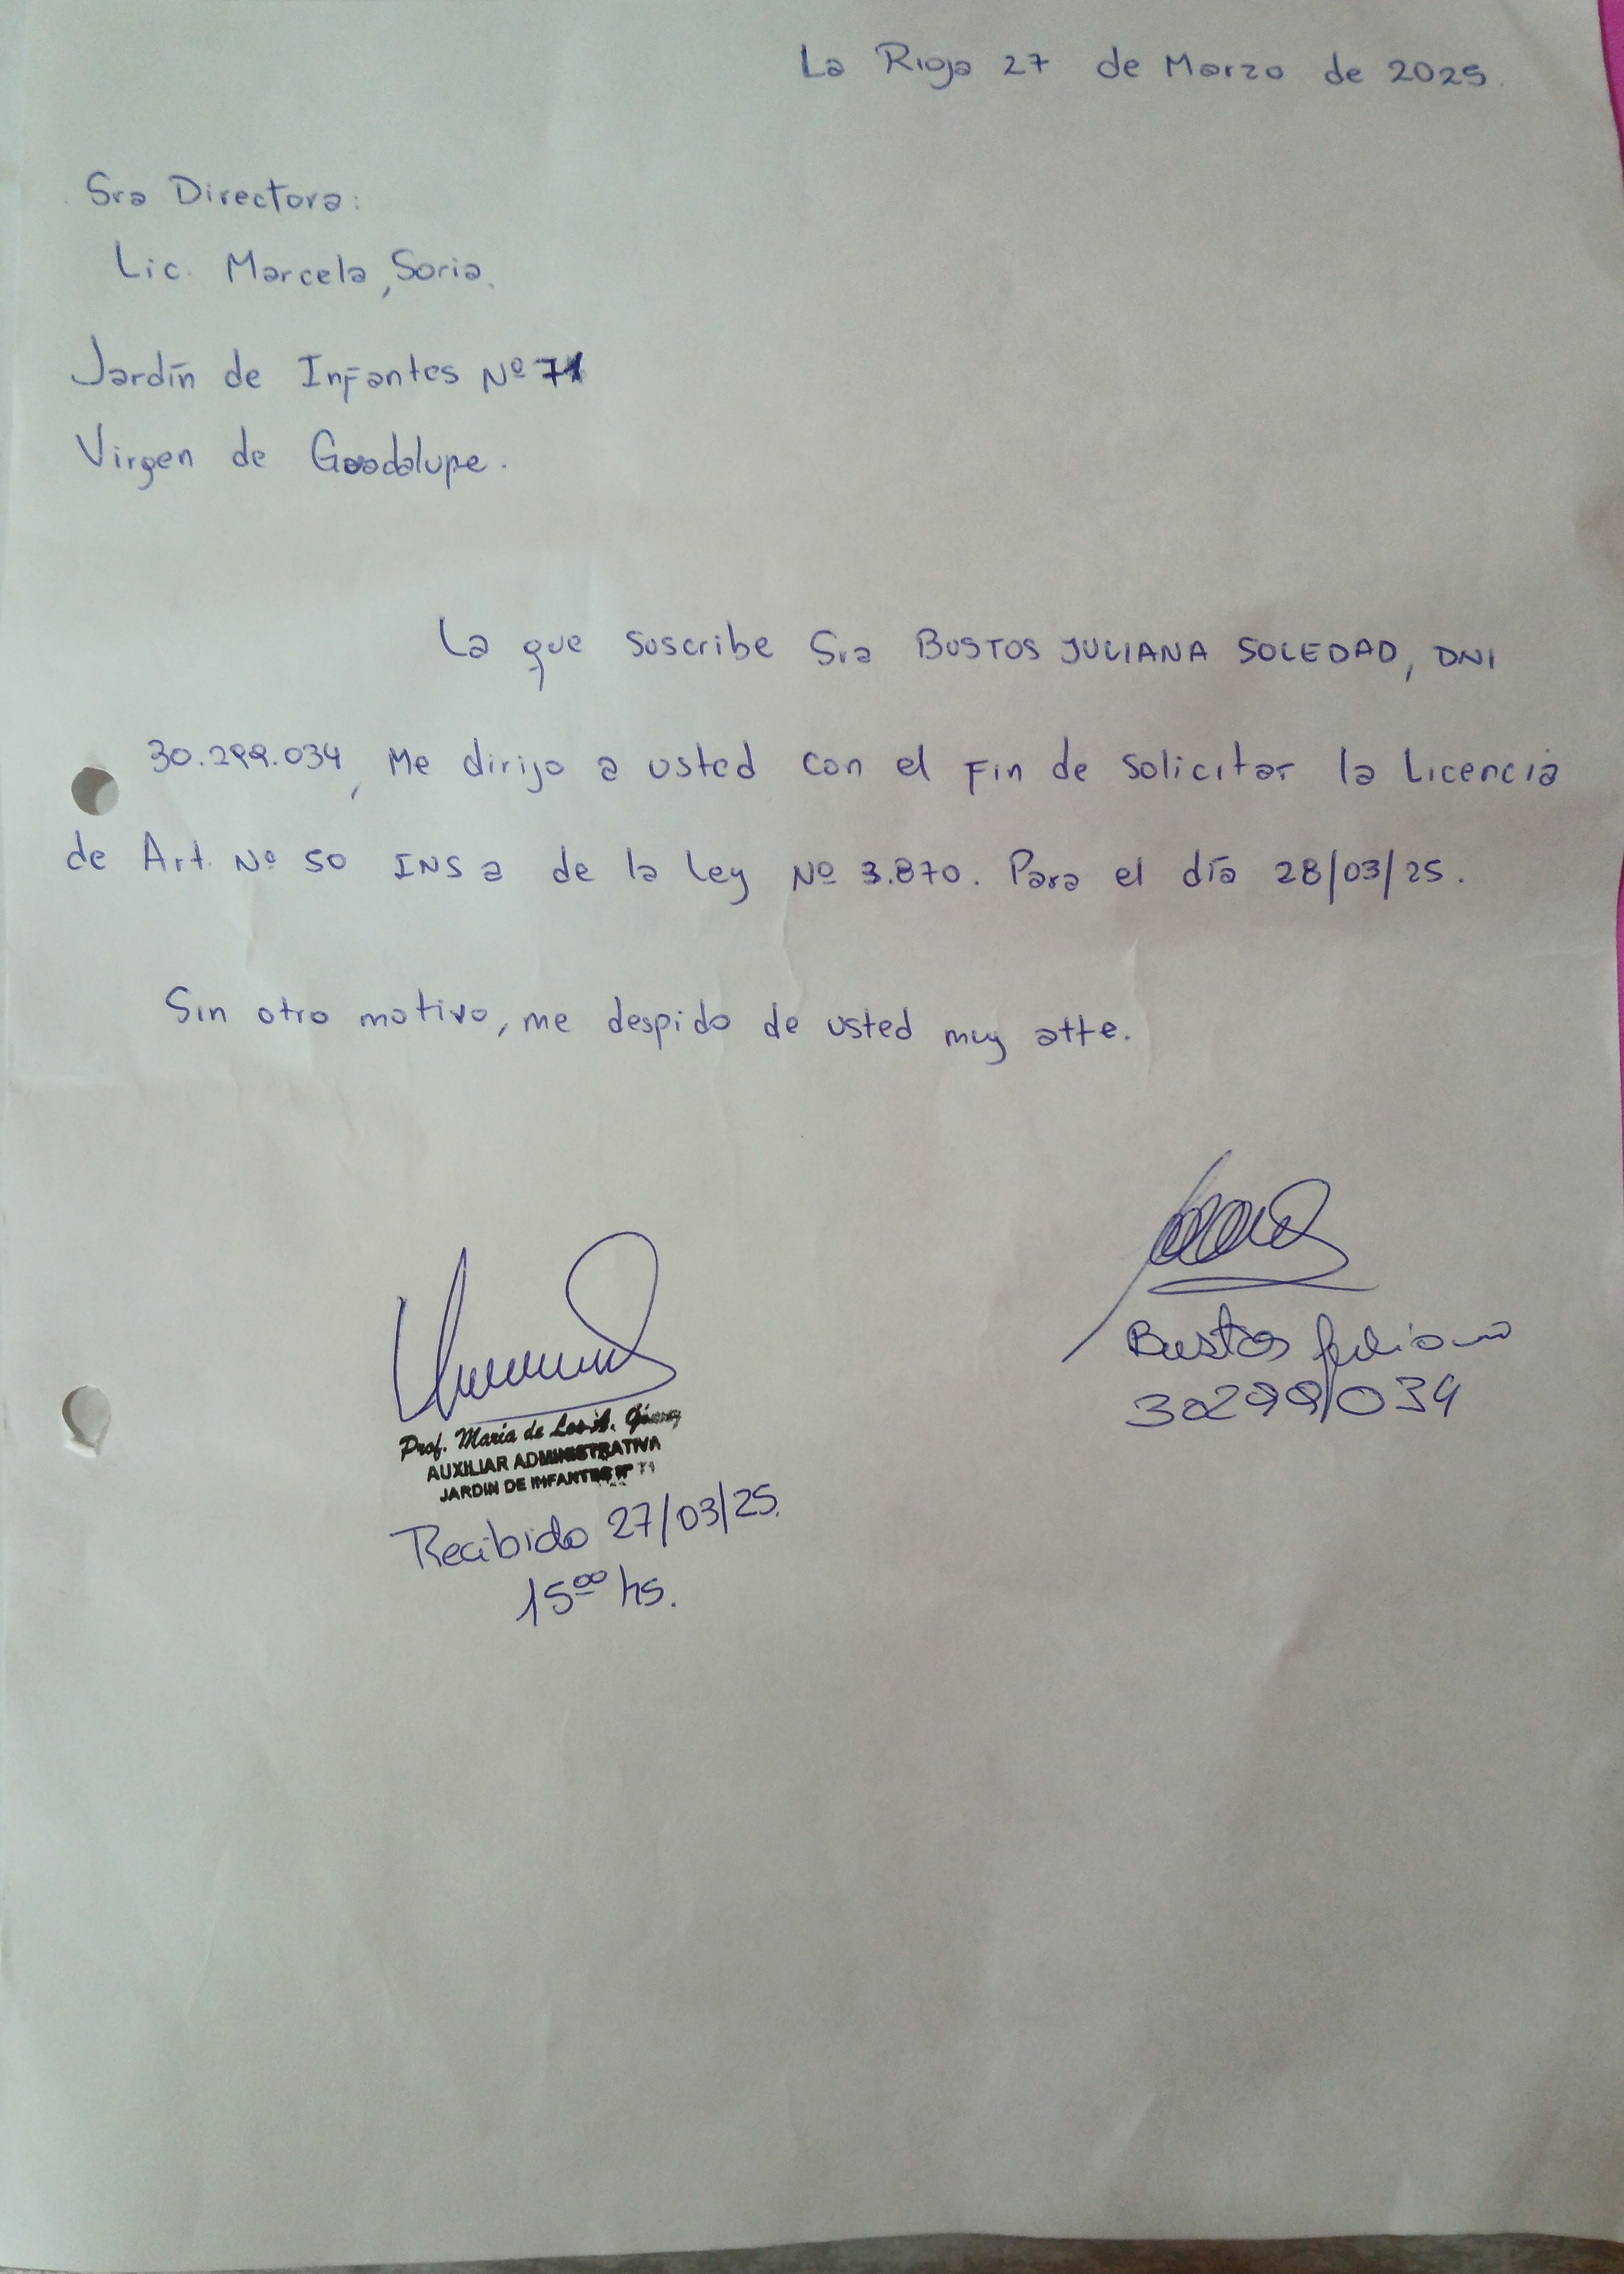 La Rioja 27 de Marzo de 2025.
Sra Directora:
Lic. Marcela, Soria.
Jardín de Infantes Nº 71
Virgen de Guadalupe.
La que suscribe Sra BUSTOS JULIANA SOLEDAD, DNI
30.299.034, Me dirijo a usted con el Fin de solicitar la Licencia
de Art. Nº 50 INS a de la Ley Nº 3.870. Para el día 28/03/25.
Sin otro motivo, me despido de usted muy atte.
Bustos Juliana
30299034
Prof. María de Los A. Gómez
AUXILIAR ADMINISTRATIVA
JARDIN DE INFANTES Nº 71
Recibido 27/03/25.
15ºº hs.